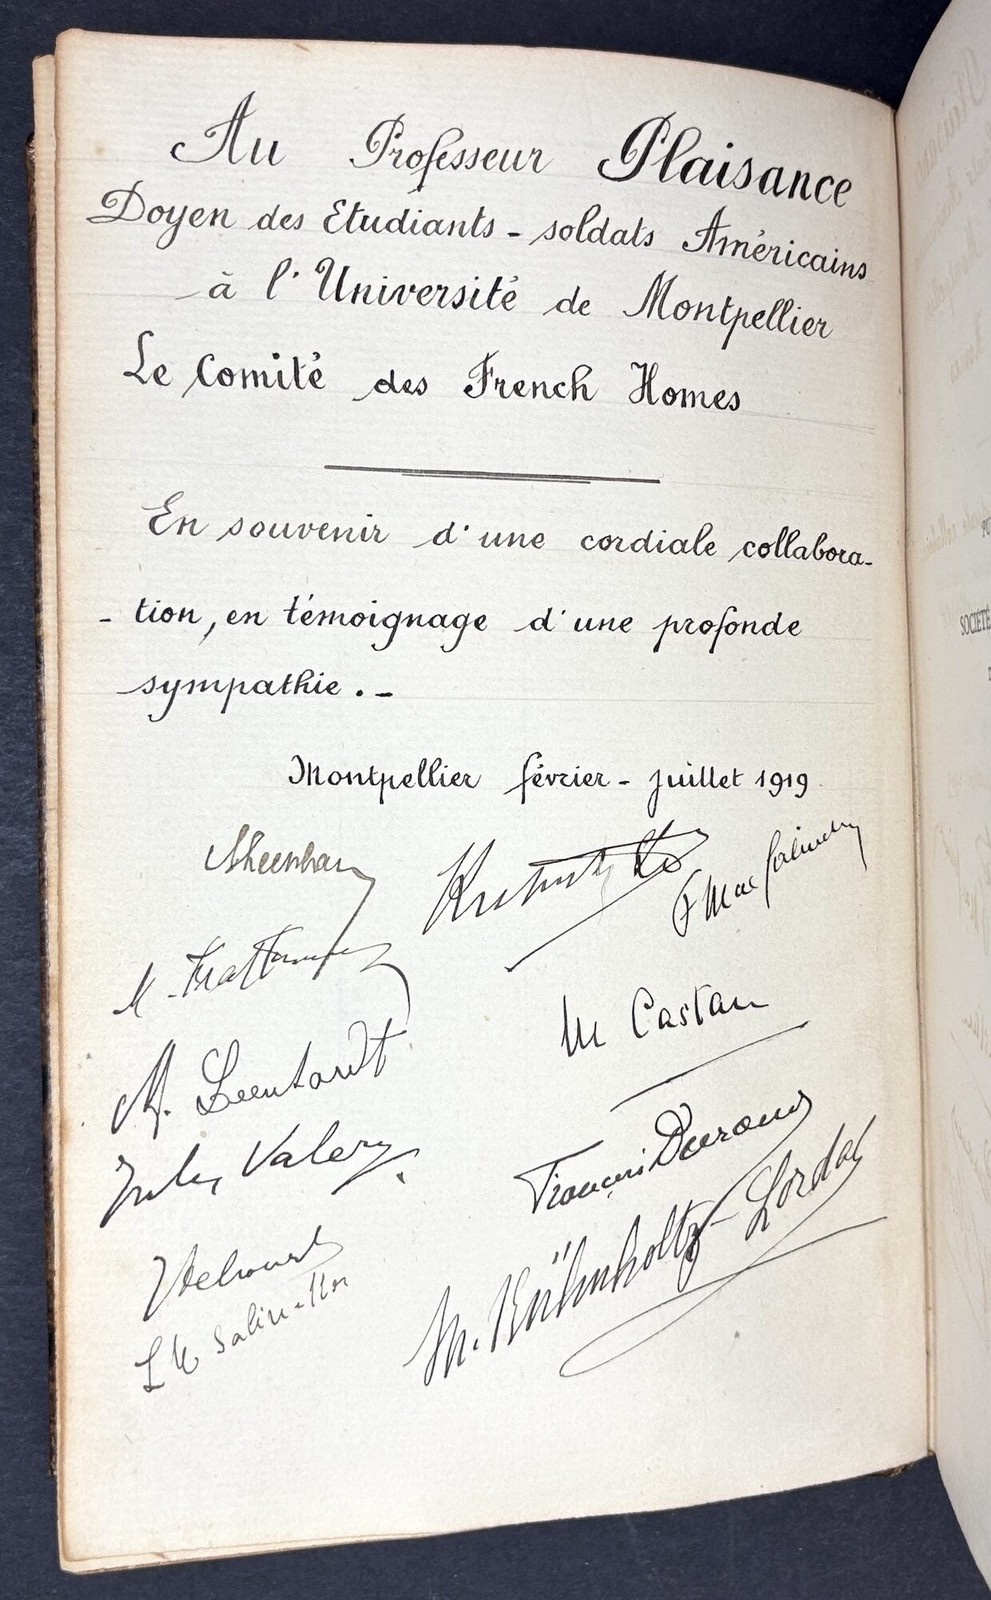 Au Professeur Plaisance
Doyen des Etudiants - soldats Américains
à l'Université de Montpellier
Le Comité des French Homes
En souvenir d'une cordiale collabora-
- tion, en témoignage d'une profonde
sympathie . -
Montpellier février - juillet 1919
M Castan
M. Leenhardt
Jules Valery
M. Kühnholtz-Lordat
SOCIÉTÉ